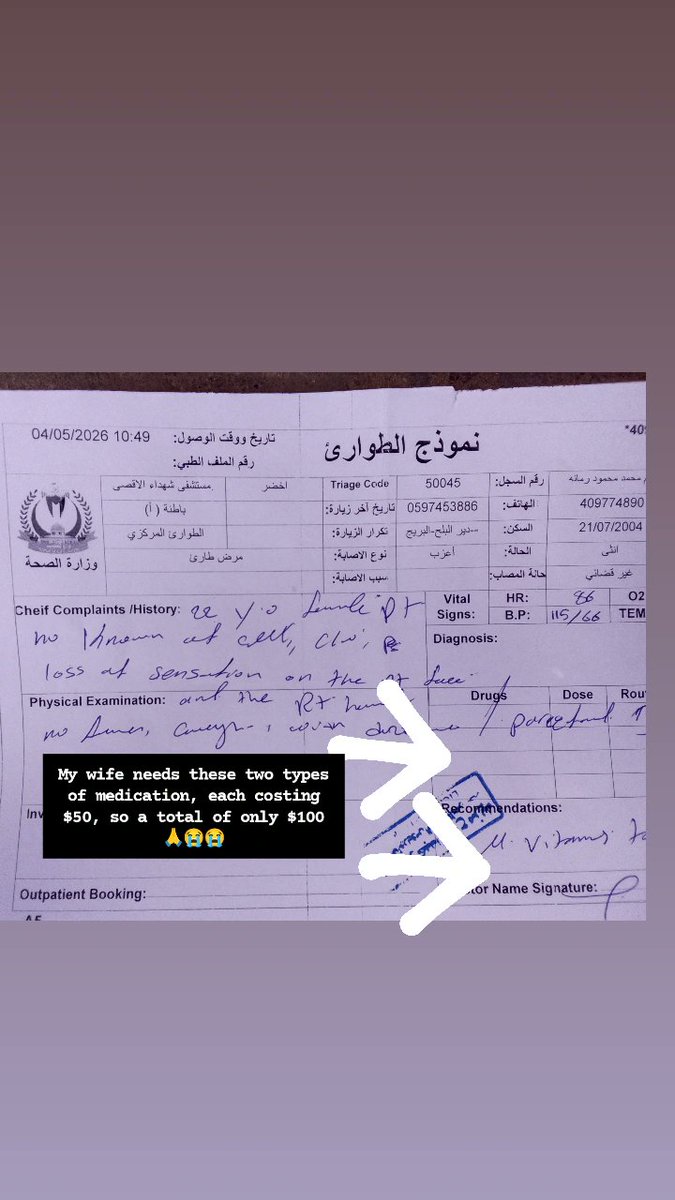 *409
نموذج الطوارئ
تاريخ ووقت الوصول: 04/05/2026 10:49
رقم الملف الطبي:
محمد محمود رمانه رقم السجل: 50045 Triage Code اخضر مستشفى شهداء الاقصى
409774890 الهاتف: 0597453886 تاريخ آخر زيارة: باطنة (أ)
21/07/2004 السكن: دير البلح-البريج تكرار الزيارة: الطوارئ المركزي
انثى الحالة: أعزب نوع الاصابة: مرض طارئ
غير قضائي حالة المصاب: سبب الاصابة:
وزارة الصحة
Cheif Complaints /History: 22 y/o female pt
no known
loss of sensation on the Rt face
Vital Signs: HR: 86 O2
B.P: 115/66 TEM
Diagnosis:
Physical Examination: and the Rt
no
Drugs Dose Rou
My wife needs these two types
of medication, each costing
$50, so a total of only $100
🙏😭😭
Inv
Recommendations:
Outpatient Booking:
tor Name Signature: